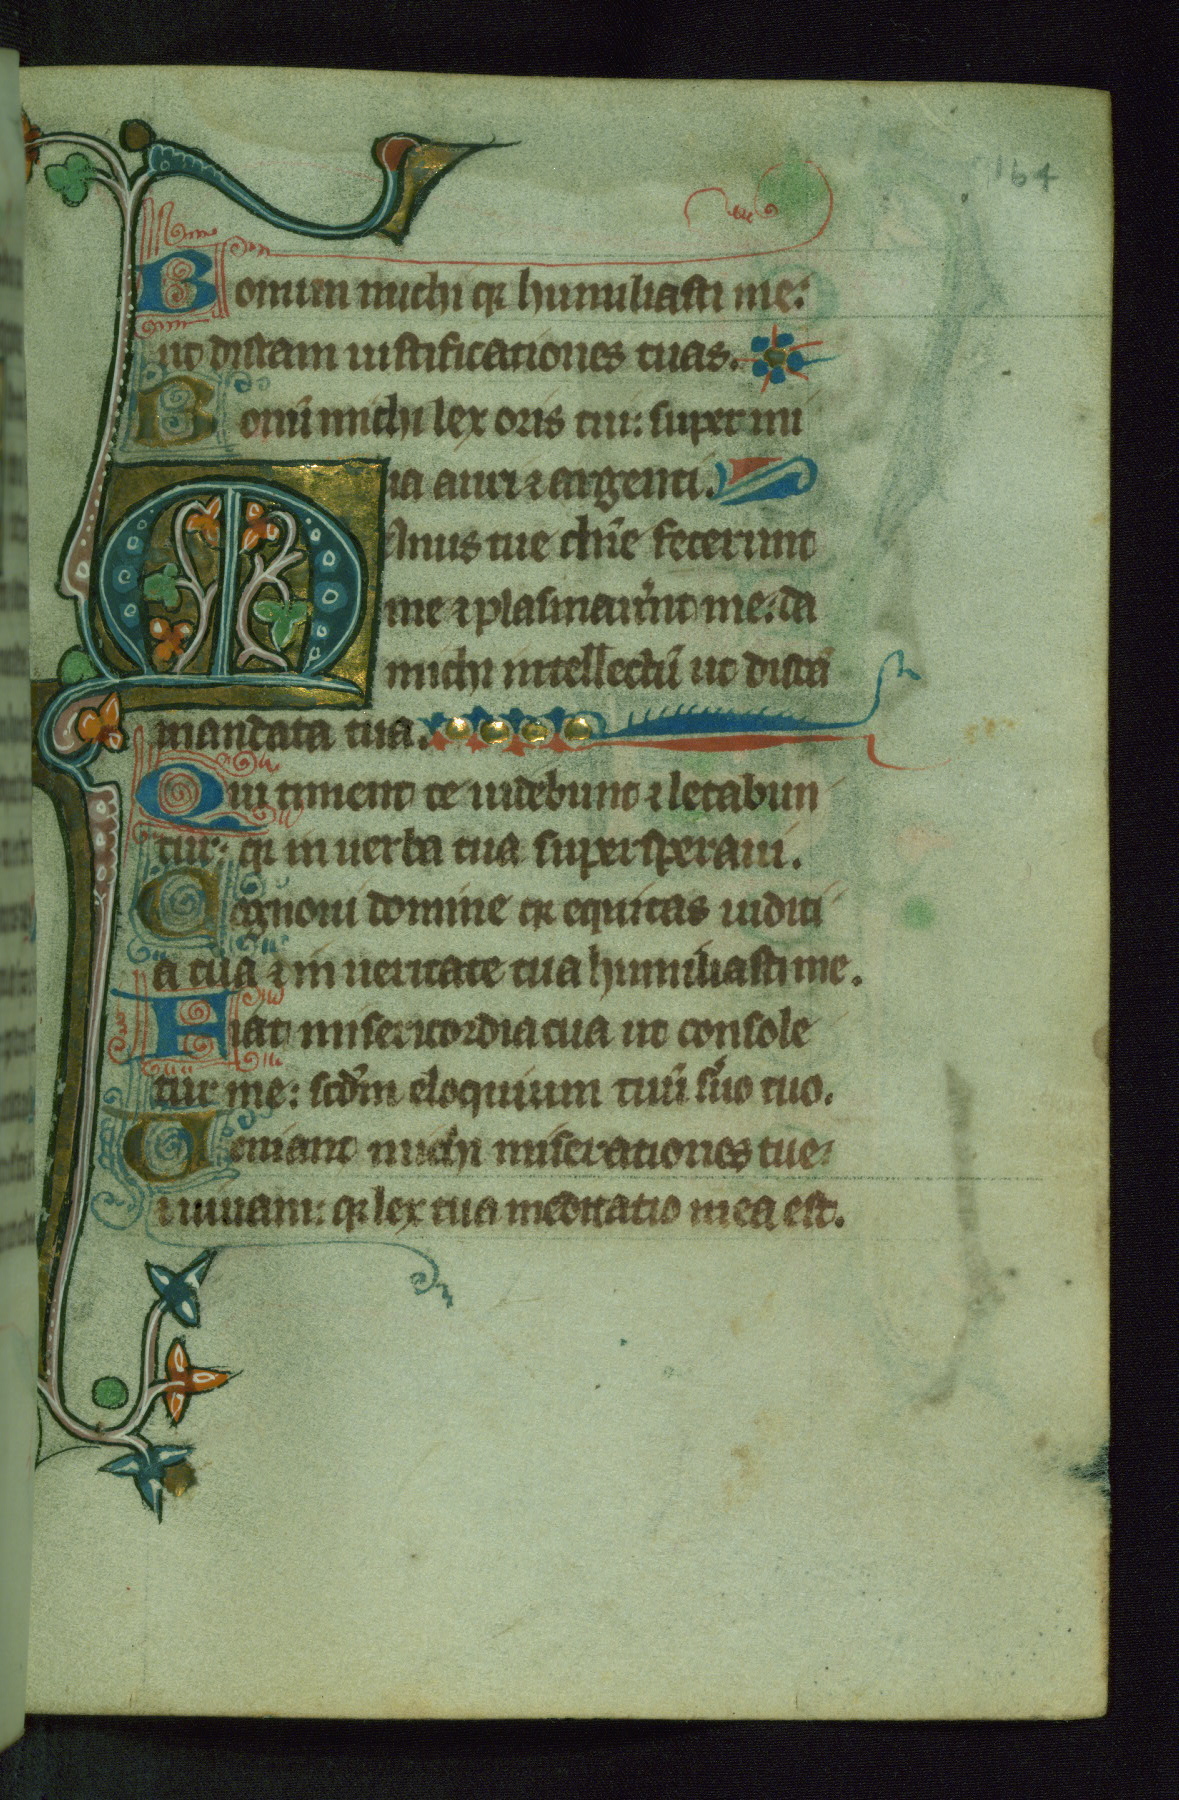 164
Bonum michi qr humiliasti me:
ut discam iustificationes tuas.
Bonū michi lex oris tui: super mi
lia auri ⁊ argenti.
Manus tue dn̄e fecerunt
me ⁊ plasmauer̄nt me: da
michi intellectū ut discā
mandata tua.
Qui timent te uidebunt ⁊ letabun
tur: qr in uerba tua supersperaui.
Cognoui domine qr equitas iudici
a tua ⁊ in ueritate tua humiliasti me.
Fiat misericordia tua ut console
tur me: scdm̄ eloquium tuū sēuo tuo.
Ueniant michi miserationes tue:
⁊ uiuam: qr lex tua meditatio mea est.